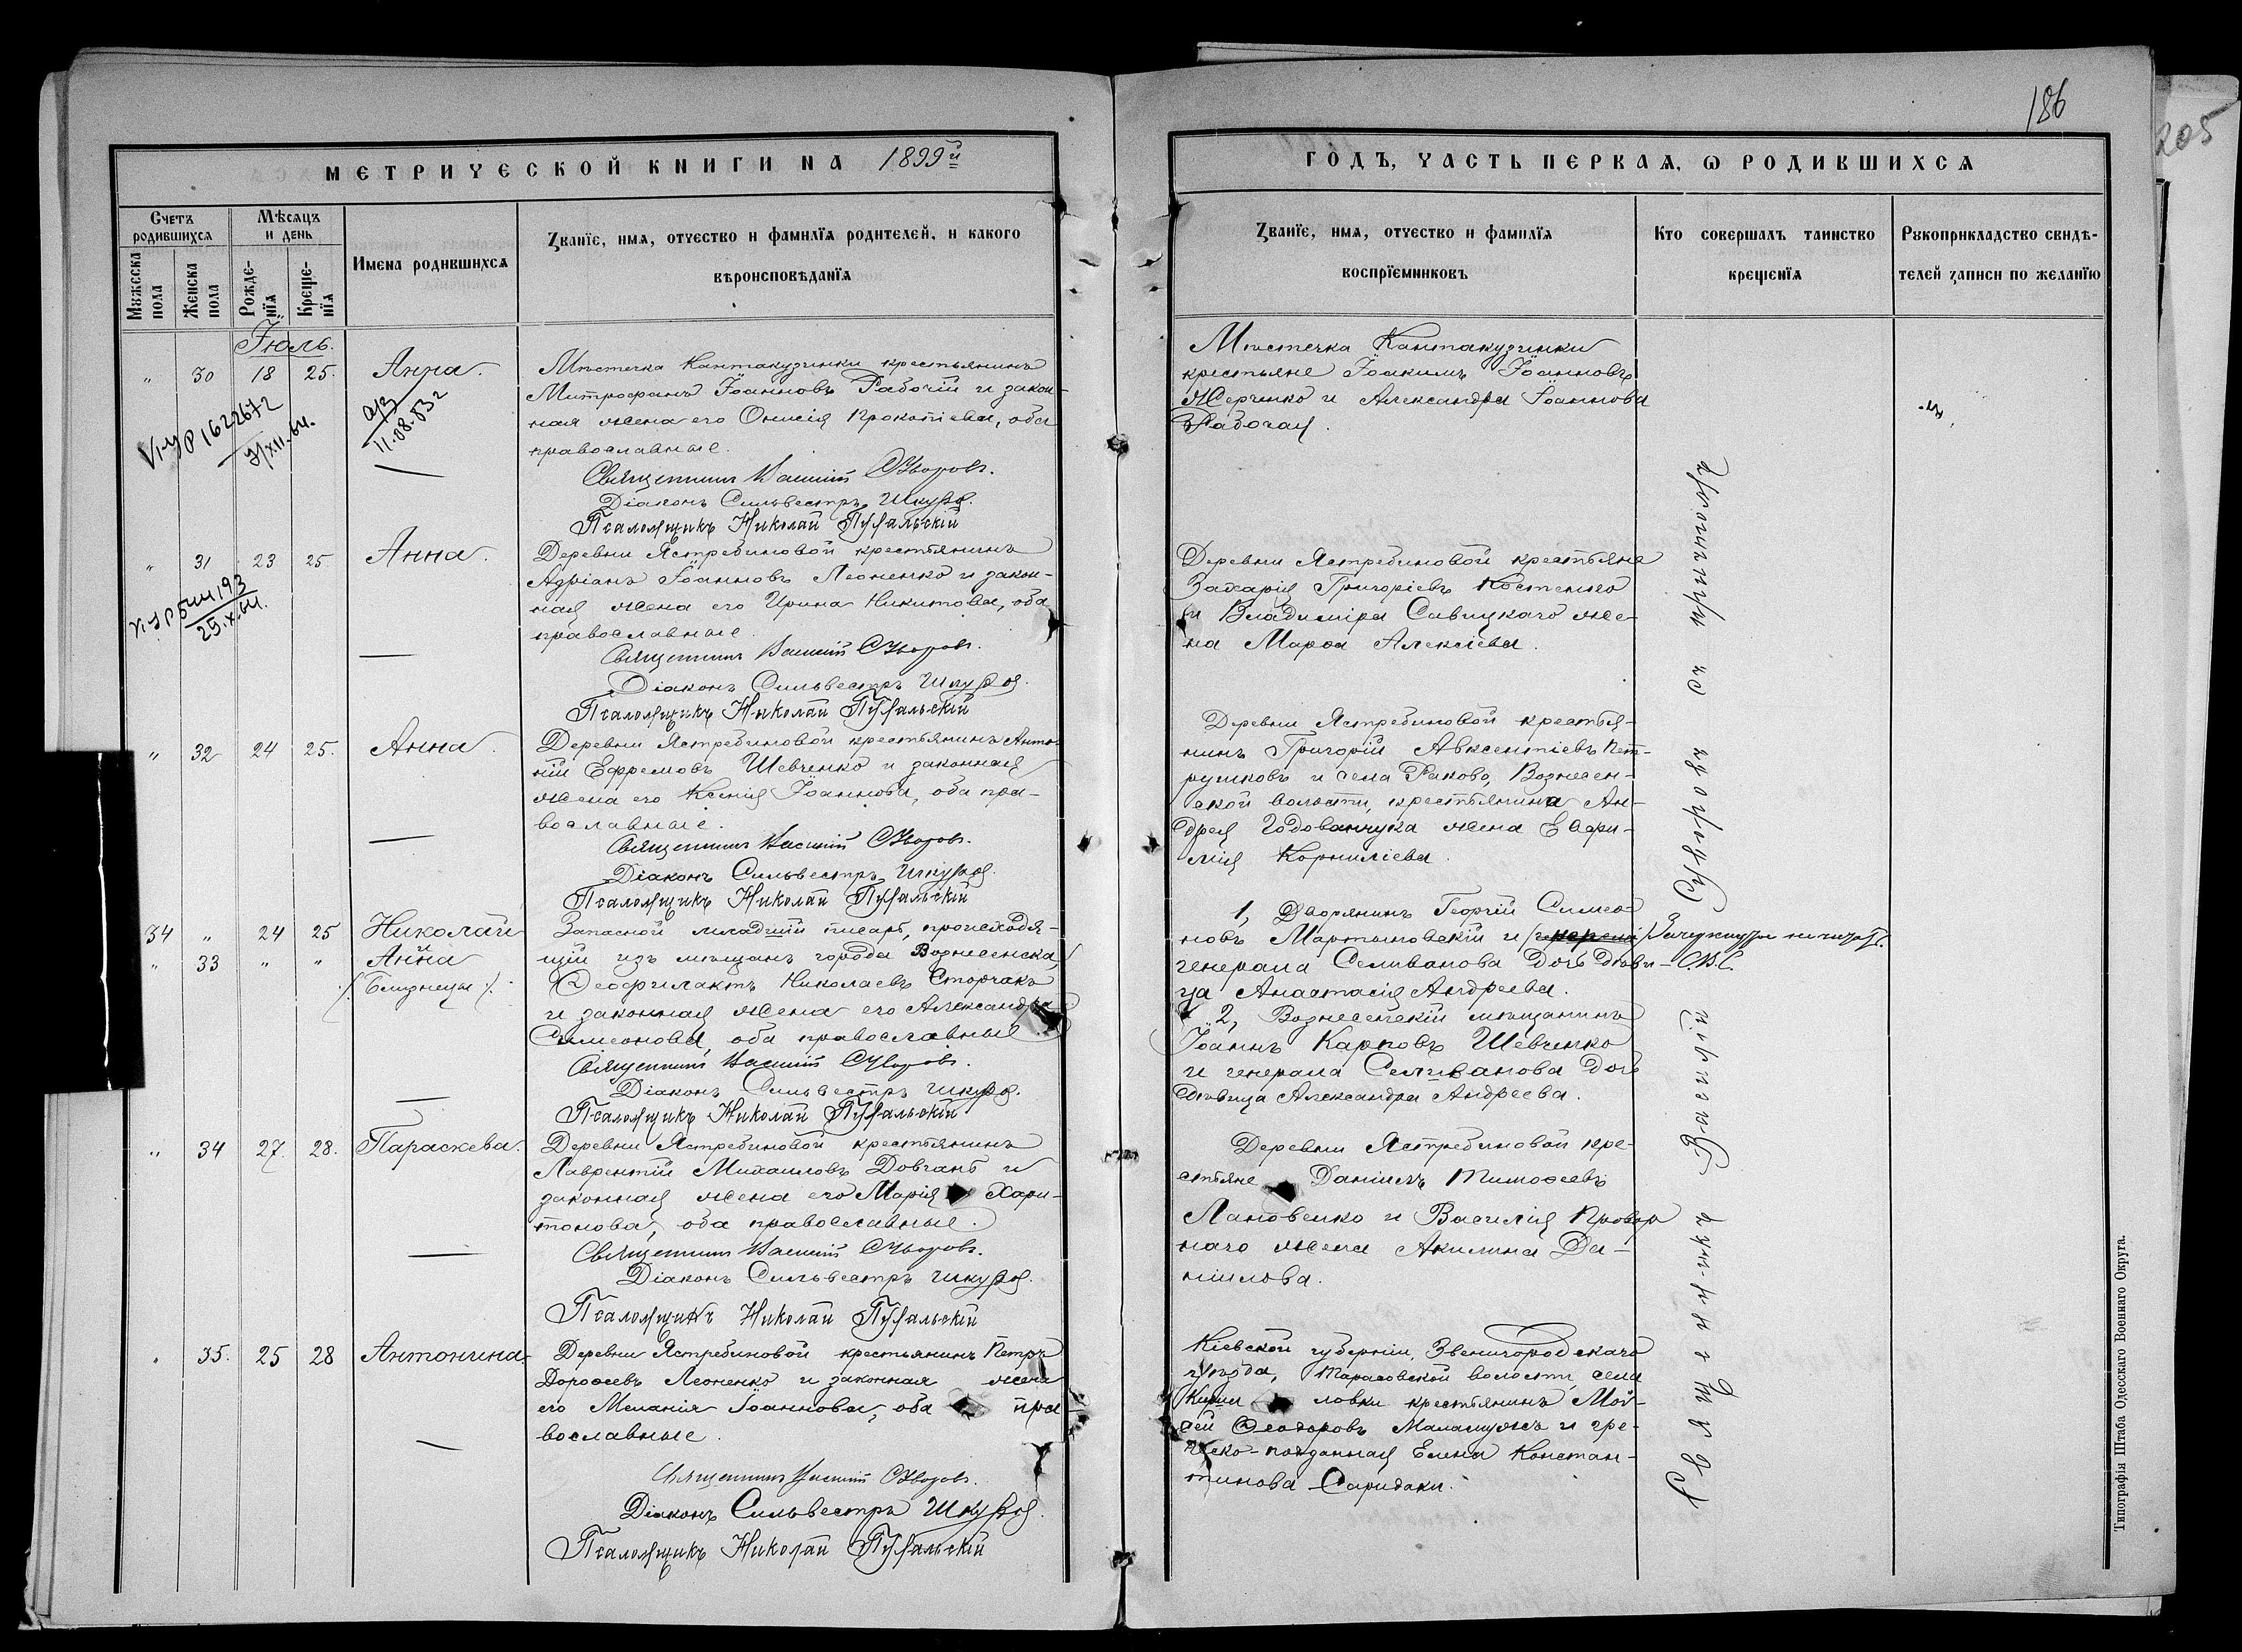 186
205
МЕТРИЧЕСКОЙ КНИГИ НА 1899й
ГОДЪ, ЧАСТЬ ПЕРВАЯ, Ѡ РОДИВШИХСЯ
Счетъ родившихся
Мѣсяцъ и день
Имена родившихся
Званїе, имя, отчество и фамилїя родителей, и какого
вѣроисповѣданїя
Мужеска пола
Женска пола
Рожденїя
Крещенїя
Званїе, имя, отчество и фамилїя
воспрїемниковъ
Кто совершалъ таинство
крещенїя
Рукоприкладство свидѣ-
телей записи по желанїю
Іюль.
„ 30 18 25. Анна.
Мѣстечка Кантакузинки крестьянинъ
Митрофанъ Іоанновъ Рабочій и закон-
ная жена его Онисія Прокопіева, оба
православные.
Священникъ Василій Суворовъ.
Діаконъ Сильвестръ
Псаломщикъ Николай
Мѣстечка Кантакузинки
крестьяне Іоакимъ Іоанновъ
Жерченко и Александра Іоаннова
Рабочая.
11.08.83г
„ 31 23 25 Анна.
25.X.64.
Деревни Ястребиновой крестьянинъ
Адріанъ Іоанновъ Леоненко и закон-
ная жена его Ирина Никитова, оба
православные.
Священникъ Василій Суворовъ.
Діаконъ Сильвестръ
Псаломщикъ Николай
Деревни Ястребиновой крестьяне
Захарія Григоріевъ Костенко
и Владиміра Савицкаго же-
на Марфа Алексіева.
„ 32 24 25. Анна.
Деревни Ястребиновой крестьянинъ Анто-
ній Ефремовъ Шевченко и законная
жена его Ксенія Іоаннова, оба пра-
вославные.
Священникъ Василій Суворовъ.
Діаконъ Сильвестръ
Псаломщикъ Николай
Деревни Ястребиновой крестья-
нинъ Григорій Авксентіевъ Пет-
рушковъ и села Раково, Вознесен-
ской волости, крестьянина Ан-
дрея Годованчука жена Евфи-
мія Корниліева.
34 „ 24 25 Николай
и
„ 33 „ „ Анна
/. Близнецы ./.
Запасной младшій писарь, происходя-
щій изъ мѣщанъ города Вознесенска,
Ѳеофилактъ Николаевъ Сторчакъ
и законная жена его Александра
Симеонова, оба православные.
Священникъ Василій Суворовъ.
Діаконъ Сильвестръ
Псаломщикъ Николай
1, Дворянинъ Георгій Симео-
новъ Мартыновскій и
генерала Селиванова дочь дѣви-
С.В.С.
ца Анастасія Андреева.
2, Вознесенскій мѣщанинъ
Іоаннъ Карповъ Шевченко
и генерала Селиванова дочь
дѣвица Александра Андреева.
„ 34 27. 28. Параскева.
Деревни Ястребиновой крестьянинъ
Лаврентій Михаиловъ Довгань и
законная жена его Марія Хари-
тонова, оба православные.
Священникъ Василій Суворовъ.
Діаконъ Сильвестръ
Псаломщикъ Николай
Деревни Ястребиновой кре-
стьяне Даніилъ Тимоѳеевъ
Лановенко и Василія Провор
наго жена Акилина Да-
ніилова.
„ 35. 25 28 Антонина.
Деревни Ястребиновой крестьянинъ Петръ
Дороѳеевъ Леоненко и законная жена
его Меланія Іоаннова, оба пра-
вославные.
Священникъ Василій Суворовъ.
Діаконъ Сильвестръ
Псаломщикъ Николай
Кіевской губерніи, Звенигородскаго
уѣзда, Тарасовской волости, села
ловки крестьянинъ Мой-
сей Ѳеодоровъ Маламужъ и гре-
ческо-подданная Елена Констан-
тинова Саридаки.
Священникъ Василій Суворовъ съ
Типографія Штаба Одесскаго Военнаго Округа.